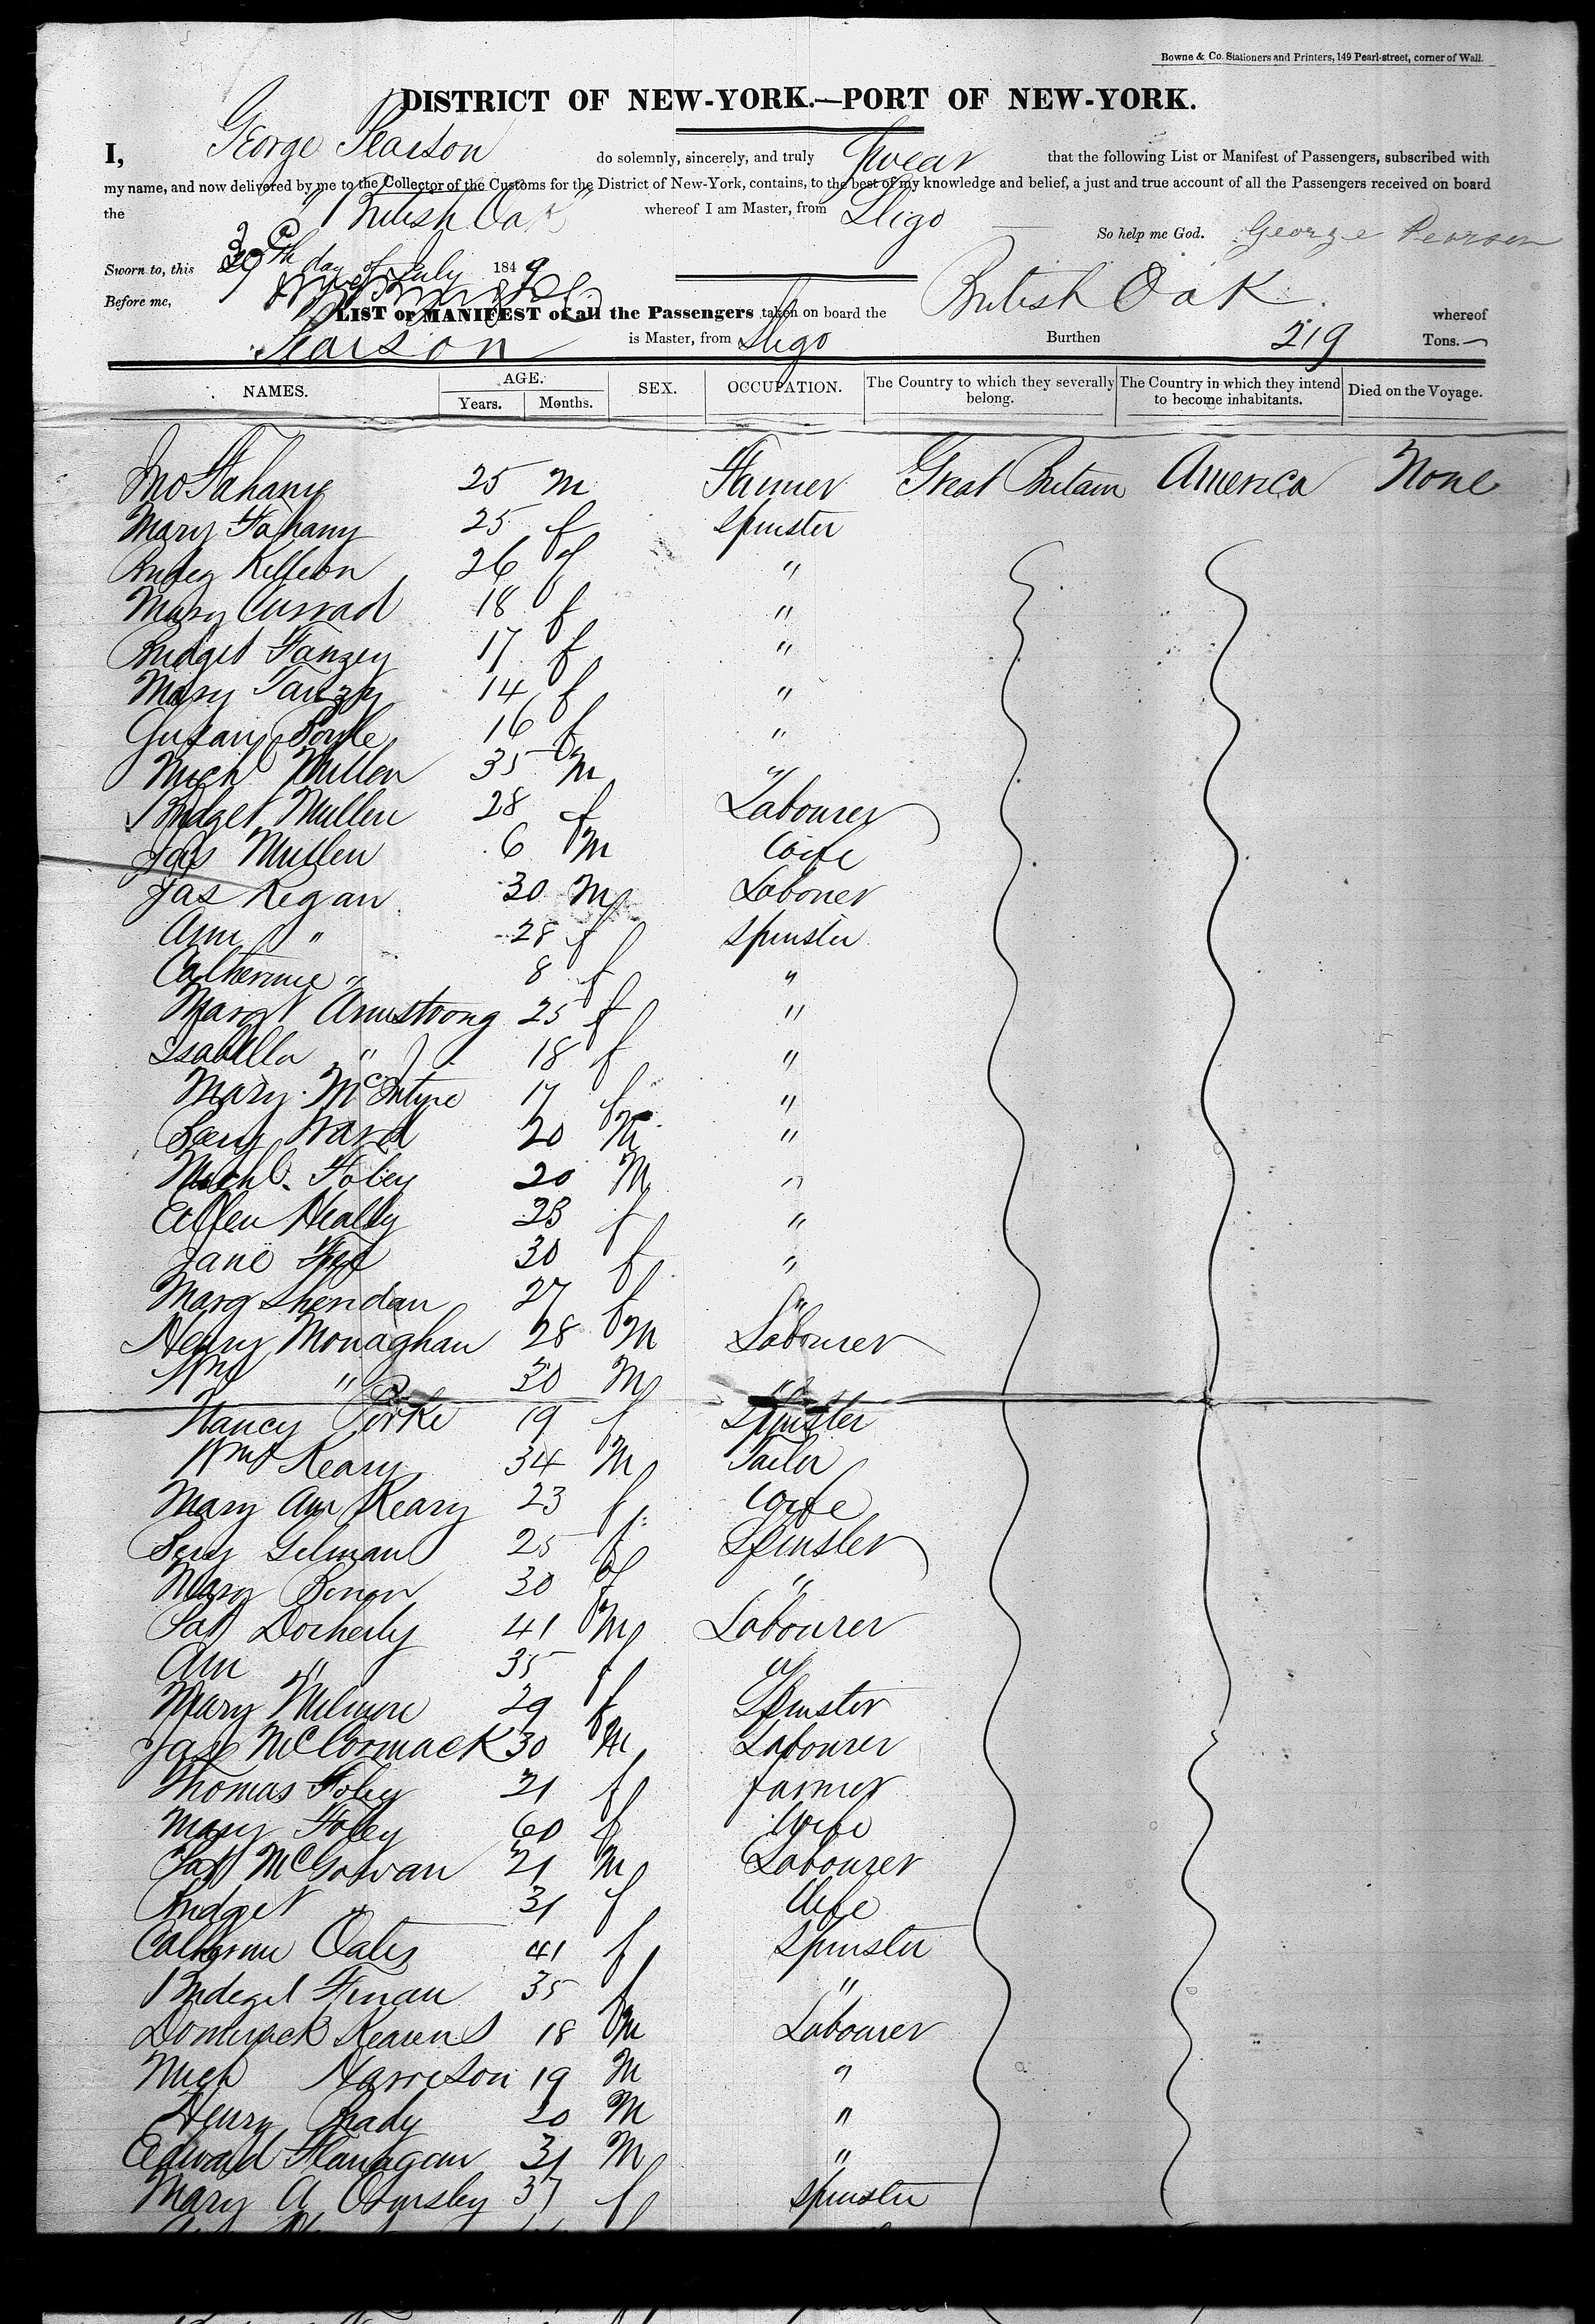 Bowne & Co. Stationers and Printers, 149 Pearl-street, corner of Wall.
DISTRICT OF NEW-YORK.—PORT OF NEW-YORK.
I, George Pearson do solemnly, sincerely, and truly Swear that the following List or Manifest of Passengers, subscribed with
my name, and now delivered by me to the Collector of the Customs for the District of New-York, contains, to the best of my knowledge and belief, a just and true account of all the Passengers received on board
the "British Oak" whereof I am Master, from Sligo
So help me God. George Pearson
Sworn to, this 30th day of July 1849
Before me,
LIST or MANIFEST of all the Passengers taken on board the British Oak whereof
Pearson is Master, from Sligo Burthen 219 Tons.
NAMES. AGE. Years. Months. SEX. OCCUPATION. The Country to which they severally belong. The Country in which they intend to become inhabitants. Died on the Voyage.
Jno Fahany 25 M Farmer Great Britain America None
Mary Fahany 25 f Spinster
Killeon 26 f "
Mary Currad 18 f "
Bridget Tanzey 17 f "
Mary Tanzy 14 f "
Boyle 16 f "
Mich Mullen 35 M "
Bridget Mullen 28 f Labourer
Jas Mullen 6 M Wife
Jas Regan 30 M Laborer
Ann " 28 f Spinster
Catherine " 8 f "
Margt Armstrong 25 f "
Isabella " 18 f "
Mary McIntyre 17 f "
Ward 20 M "
Michl. Foley 20 M "
Ellen Healy 23 f "
Jane 30 f "
Marg Sheridan 27 f "
Henry Monaghan 28 M Labourer
Wm " 30 M "
Nancy Rorke 19 f Spinster
Wm Keary 34 M Tailor
Mary Ann Keary 23 f Wife
Gilman 25 f Spinster
Mary 30 f "
Pat Docherty 41 M Labourer
Ann " 35 f "
Mary Milmore 29 f Spinster
Jas McCormack 30 M Labourer
Thomas Foley 21 f farmer
Mary Foley 60 f Wife
Pat McGowan 21 M Labourer
Bridget " 31 f Wife
Catherine Oates 41 f Spinster
Bridget Finan 35 f "
Dominack Kearns 18 M Labourer
Mich Harrison 19 M "
Henry Brady 20 M "
Edward Flanagan 31 M "
Mary A Ormsby 37 f Spinster